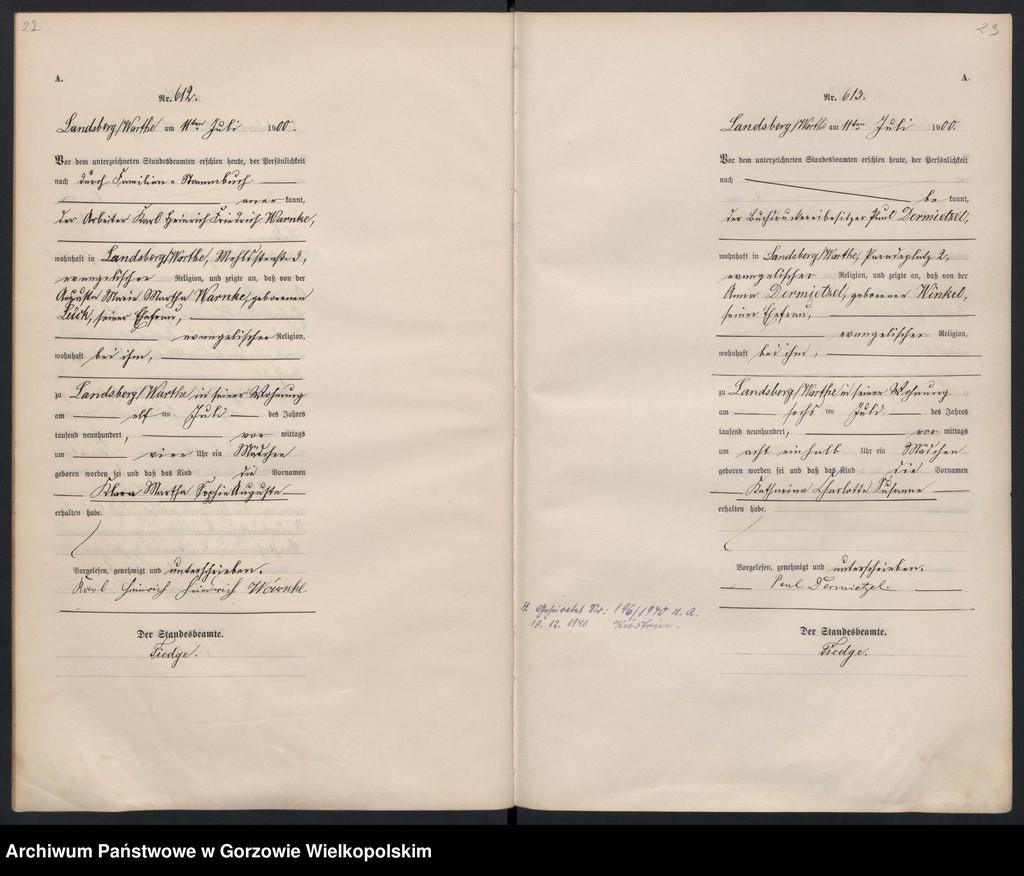 22
A.
Nr. 612.
Landsberg/Warthe am 11ten Juli 1900.
Vor dem unterzeichneten Standesbeamten erschien heute, der Persönlichkeit
nach durch Familien-Stammbuch
aner kannt,
der Arbeiter Karl Heinrich Friedrich Warnke,
wohnhaft in Landsberg/Warthe,
evangelischer Religion, und zeigte an, daß von der
Auguste Marie Martha Warnke, geborenen
Lück, seiner Ehefrau,
evangelischer Religion,
wohnhaft bei ihm,
zu Landsberg/Warthe in seiner Wohnung
am elf ten Juli des Jahres
tausend neunhundert, vor mittags
um vier Uhr ein Mädchen
geboren worden sei und daß das Kind die Vornamen
Klara Martha Sophie Auguste
erhalten habe.
Vorgelesen, genehmigt und unterschrieben.
Karl Heinrich Friedrich Warnke.
Der Standesbeamte.
Tiedge.
23
A.
Nr. 613.
Landsberg/Warthe am 11ten Juli 1900.
Vor dem unterzeichneten Standesbeamten erschien heute, der Persönlichkeit
nach
be kannt,
der Buchdruckereibesitzer Paul Dermietzel,
wohnhaft in Landsberg/Warthe, Paradeplatz 2,
evangelischer Religion, und zeigte an, daß von der
Anna Dermietzel, geborener Winkel,
seiner Ehefrau,
evangelischer Religion,
wohnhaft bei ihm,
zu Landsberg/Warthe in seiner Wohnung
am sechs ten Juli des Jahres
tausend neunhundert, vor mittags
um acht einhalb Uhr ein Mädchen
geboren worden sei und daß das Kind die Vornamen
Katharina Charlotte Susanne
erhalten habe.
Vorgelesen, genehmigt und unterschrieben.
Paul Dermietzel.
Der Standesbeamte.
Tiedge.
Geheiratet Nr: 196/1940 St. A.
12. 1940 Küstrin.
Archiwum Państwowe w Gorzowie Wielkopolskim